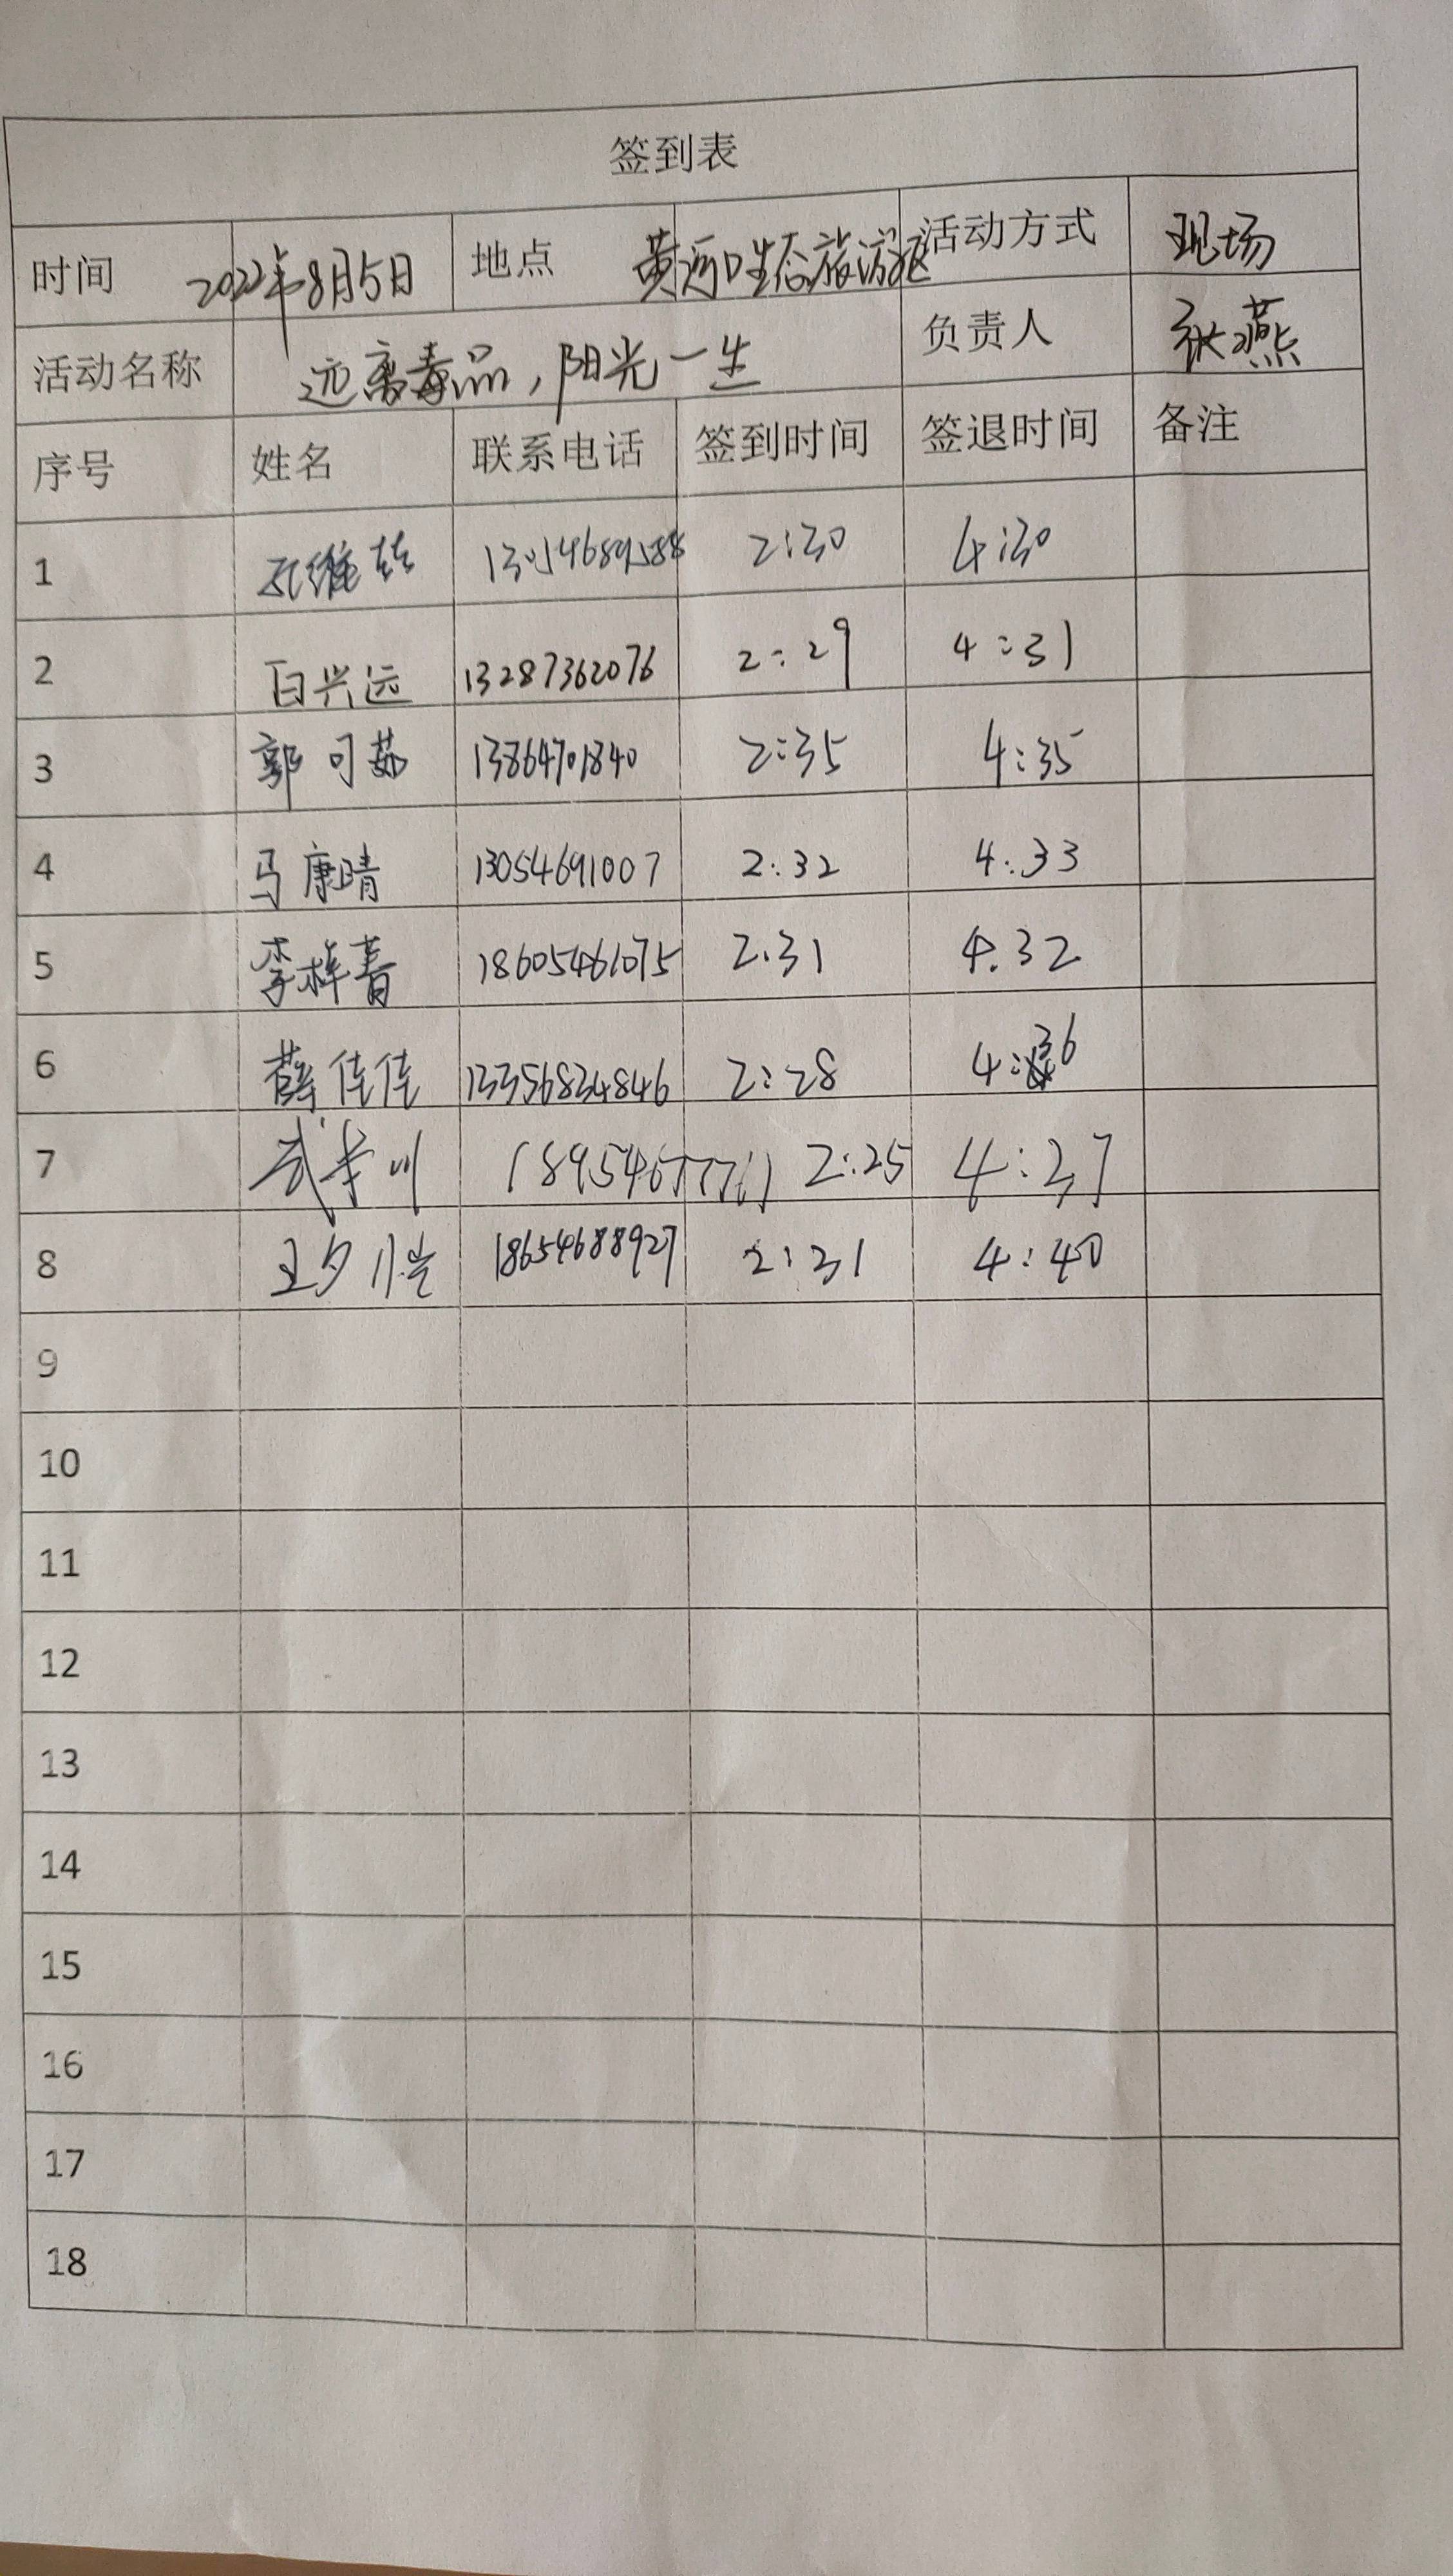 签到表
时间 2022年8月5日 地点 黄河口生态旅游区 活动方式 现场
活动名称 远离毒品，阳光一生 负责人 张燕
序号 姓名 联系电话 签到时间 签退时间 备注
1 2:30 4:30
2 白兴远 13287362076 2:29 4:31
3 郭可茹 13864701840 2:35 4:35
4 马康晴 13054691007 2:32 4:33
5 李梓青 18605461075 2.31 4.32
6 薛佳佳 13356834846 2:28 4:36
7 2:25 4:37
8 18654688927 2:31 4:40
9
10
11
12
13
14
15
16
17
18